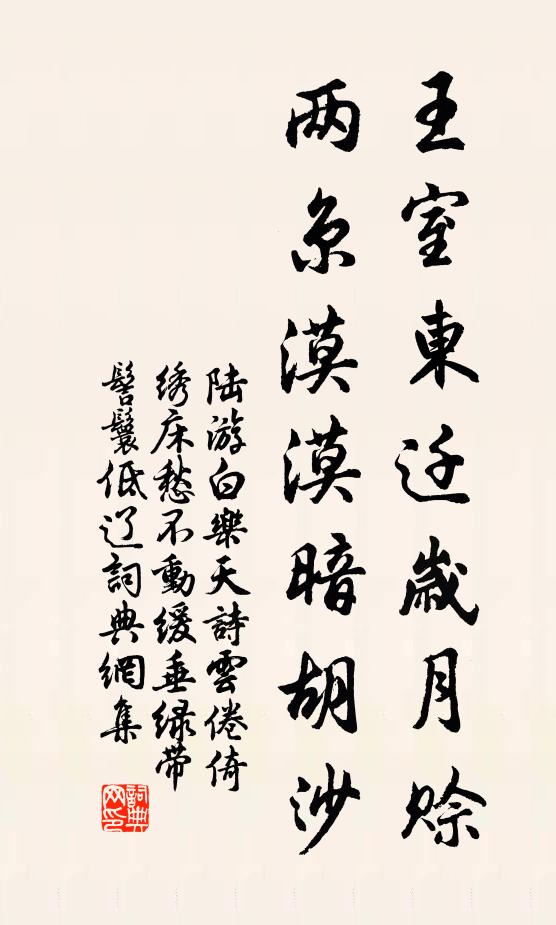 王室東迁歲月赊
两京漠漠暗胡沙
陆游白樂天詩雲倦倚
绣床愁不動緩垂緑带
髻鬟低辽詞典網集
詞典网印